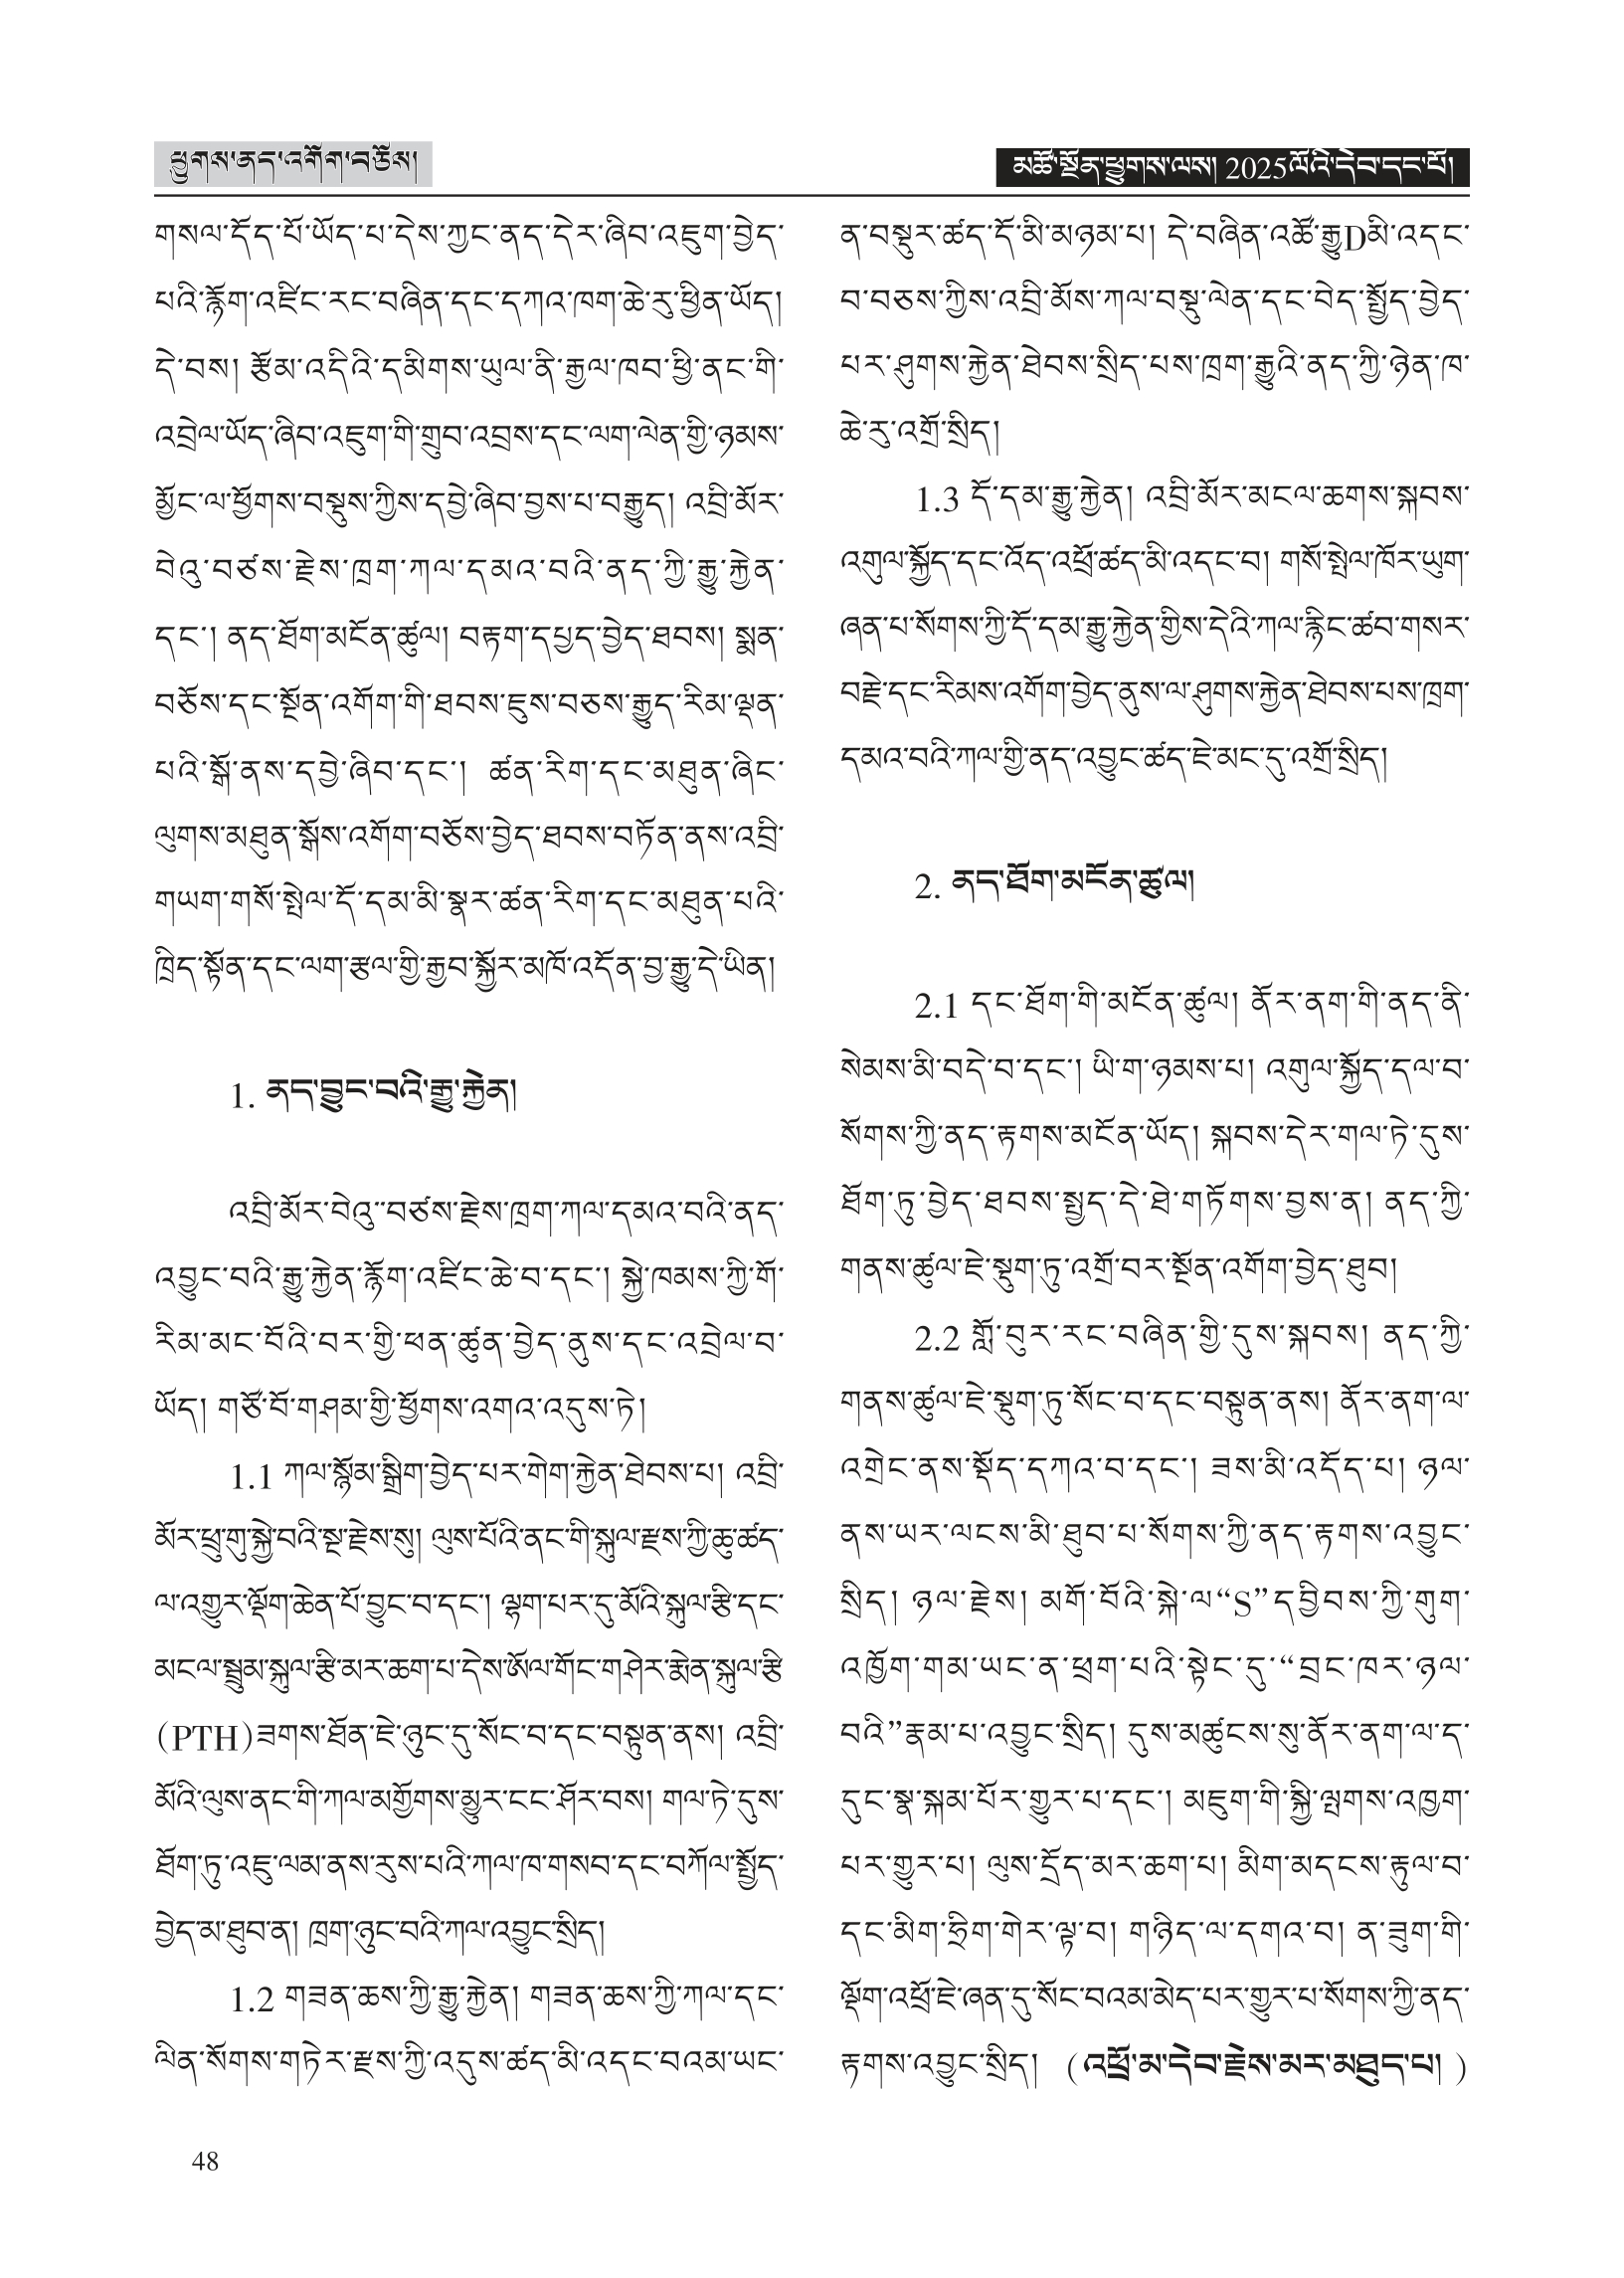 ཕྱུགས་ནད་འགོག་བཅོས།
མཚོ་སྔོན་ཕྱུགས་ལས། 2025ལོའི་དེབ་དང་པོ།
གསལ་དོད་པོ་ཡོད་པ་དེས་ཀྱང་ནད་དེར་ཞིབ་འཇུག་བྱེད་
པའི་རྙོག་འཛིང་རང་བཞིན་དང་དཀའ་ཁག་ཆེ་རུ་ཕྱིན་ཡོད།
དེ་བས། རྩོམ་འདིའི་དམིགས་ཡུལ་ནི་རྒྱལ་ཁབ་ཕྱི་ནང་གི་
འབྲེལ་ཡོད་ཞིབ་འཇུག་གི་གྲུབ་འབྲས་དང་ལག་ལེན་གྱི་ཉམས་
མྱོང་ལ་ཕྱོགས་བསྡུས་ཀྱིས་དབྱེ་ཞིབ་བྱས་པ་བརྒྱུད། འབྲི་མོར་
བེའུ་བཙས་རྗེས་ཁྲག་ཀལ་དམའ་བའི་ནད་ཀྱི་རྒྱུ་རྐྱེན་
དང་། ནད་ཐོག་མངོན་ཚུལ། བརྟག་དཔྱད་བྱེད་ཐབས། སྨན་
བཅོས་དང་སྔོན་འགོག་གི་ཐབས་ཇུས་བཅས་རྒྱུད་རིམ་ལྡན་
པའི་སྒོ་ནས་དབྱེ་ཞིབ་དང་། ཚན་རིག་དང་མཐུན་ཞིང་
ལུགས་མཐུན་སྒོས་འགོག་བཅོས་བྱེད་ཐབས་བཏོན་ནས་འབྲི་
གཡག་གསོ་སྤེལ་དོ་དམ་མི་སྣར་ཚན་རིག་དང་མཐུན་པའི་
ཁྲིད་སྟོན་དང་ལག་རྩལ་གྱི་རྒྱབ་སྐྱོར་མཁོ་འདོན་བྱ་རྒྱུ་དེ་ཡིན།
1. ནད་བྱུང་བའི་རྒྱུ་རྐྱེན།
འབྲི་མོར་བེའུ་བཙས་རྗེས་ཁྲག་ཀལ་དམའ་བའི་ནད་
འབྱུང་བའི་རྒྱུ་རྐྱེན་རྙོག་འཛིང་ཆེ་བ་དང་། སྐྱེ་ཁམས་ཀྱི་གོ་
རིམ་མང་པོའི་བར་གྱི་ཕན་ཚུན་བྱེད་ནུས་དང་འབྲེལ་བ་
ཡོད། གཙོ་བོ་གཤམ་གྱི་ཕྱོགས་འགའ་འདུས་ཏེ།
1.1 ཀལ་སྙོམ་སྒྲིག་བྱེད་པར་གེག་རྐྱེན་ཐེབས་པ། འབྲི་
མོར་ཕྲུ་གུ་སྐྱེ་བའི་སྔ་རྗེས་སུ། ལུས་པོའི་ནང་གི་སྐུལ་རྫས་ཀྱི་ཆུ་ཚད་
ལ་འགྱུར་ལྡོག་ཆེན་པོ་བྱུང་བ་དང་། ལྷག་པར་དུ་མོའི་སྐུལ་རྩི་དང་
མངལ་སྦྲུམ་སྐུལ་རྩི་མར་ཆག་པ་དེས་ཨོལ་གོང་གཤེར་རྨེན་སྐུལ་རྩི
(PTH)ཟགས་ཐོན་ཇེ་ཉུང་དུ་སོང་བ་དང་བསྟུན་ནས། འབྲི་
མོའི་ལུས་ནང་གི་ཀལ་མགྱོགས་མྱུར་ངང་ཤོར་བས། གལ་ཏེ་དུས་
ཐོག་ཏུ་འཇུ་ལམ་ནས་རུས་པའི་ཀལ་ཁ་གསབ་དང་བཀོལ་སྤྱོད་
བྱེད་མ་ཐུབ་ན། ཁྲག་ཉུང་བའི་ཀལ་འབྱུང་སྲིད།
1.2 གཟན་ཆས་ཀྱི་རྒྱུ་རྐྱེན། གཟན་ཆས་ཀྱི་ཀལ་དང་
ལིན་སོགས་གཏེར་རྫས་ཀྱི་འདུས་ཚད་མི་འདང་བའམ་ཡང་
ན་བསྡུར་ཚད་དོ་མི་མཉམ་པ། དེ་བཞིན་འཚོ་རྒྱུDམི་འདང་
བ་བཅས་ཀྱིས་འབྲི་མོས་ཀལ་བསྡུ་ལེན་དང་བེད་སྤྱོད་བྱེད་
པར་ཤུགས་རྐྱེན་ཐེབས་སྲིད་པས་ཁྲག་རྒྱུའི་ནད་ཀྱི་ཉེན་ཁ་
ཆེ་རུ་འགྲོ་སྲིད།
1.3 དོ་དམ་རྒྱུ་རྐྱེན། འབྲི་མོར་མངལ་ཆགས་སྐབས་
འགུལ་སྐྱོད་དང་འོད་འཕྲོ་ཚད་མི་འདང་བ། གསོ་སྤེལ་ཁོར་ཡུག་
ཞན་པ་སོགས་ཀྱི་དོ་དམ་རྒྱུ་རྐྱེན་གྱིས་དེའི་ཀལ་རྙིང་ཚབ་གསར་
བརྗེ་དང་རིམས་འགོག་བྱེད་ནུས་ལ་ཤུགས་རྐྱེན་ཐེབས་པས་ཁྲག་
དམའ་བའི་ཀལ་གྱི་ནད་འབྱུང་ཚད་ཇེ་མང་དུ་འགྲོ་སྲིད།
2. ནད་ཐོག་མངོན་ཚུལ།
2.1 དང་ཐོག་གི་མངོན་ཚུལ། ནོར་ནག་གི་ནད་ནི་
སེམས་མི་བདེ་བ་དང་། ཡི་ག་ཉམས་པ། འགུལ་སྐྱོད་དལ་བ་
སོགས་ཀྱི་ནད་རྟགས་མངོན་ཡོད། སྐབས་དེར་གལ་ཏེ་དུས་
ཐོག་ཏུ་བྱེད་ཐབས་སྤྱད་དེ་ཐེ་གཏོགས་བྱས་ན། ནད་ཀྱི་
གནས་ཚུལ་ཇེ་སྡུག་ཏུ་འགྲོ་བར་སྔོན་འགོག་བྱེད་ཐུབ།
2.2 གློ་བུར་རང་བཞིན་གྱི་དུས་སྐབས། ནད་ཀྱི་
གནས་ཚུལ་ཇེ་སྡུག་ཏུ་སོང་བ་དང་བསྟུན་ནས། ནོར་ནག་ལ་
འགྲེང་ནས་སྡོད་དཀའ་བ་དང་། ཟས་མི་འདོད་པ། ཉལ་
ནས་ཡར་ལངས་མི་ཐུབ་པ་སོགས་ཀྱི་ནད་རྟགས་འབྱུང་
སྲིད། ཉལ་རྗེས། མགོ་བོའི་སྐེ་ལ“S”དབྱིབས་ཀྱི་གུག་
འཁྱོག་གམ་ཡང་ན་ཕྲག་པའི་སྟེང་དུ་“བྲང་ཁར་ཉལ་
བའི”རྣམ་པ་འབྱུང་སྲིད། དུས་མཚུངས་སུ་ནོར་ནག་ལ་ད་
དུང་སྣ་སྐམ་པོར་གྱུར་པ་དང་། མཇུག་གི་སྐྱི་ལྤགས་འཁྱག་
པར་གྱུར་པ། ལུས་དྲོད་མར་ཆག་པ། མིག་མདངས་རྟུལ་བ་
དང་མིག་ཧྲིག་གེར་ལྟ་བ། གཉིད་ལ་དགའ་བ། ན་ཟུག་གི་
ལྡོག་འཕྲོ་ཇེ་ཞན་དུ་སོང་བའམ་མེད་པར་གྱུར་པ་སོགས་ཀྱི་ནད་
རྟགས་འབྱུང་སྲིད། (འཕྲོ་མ་དེབ་རྗེས་མར་མཐུད་པ། )
48